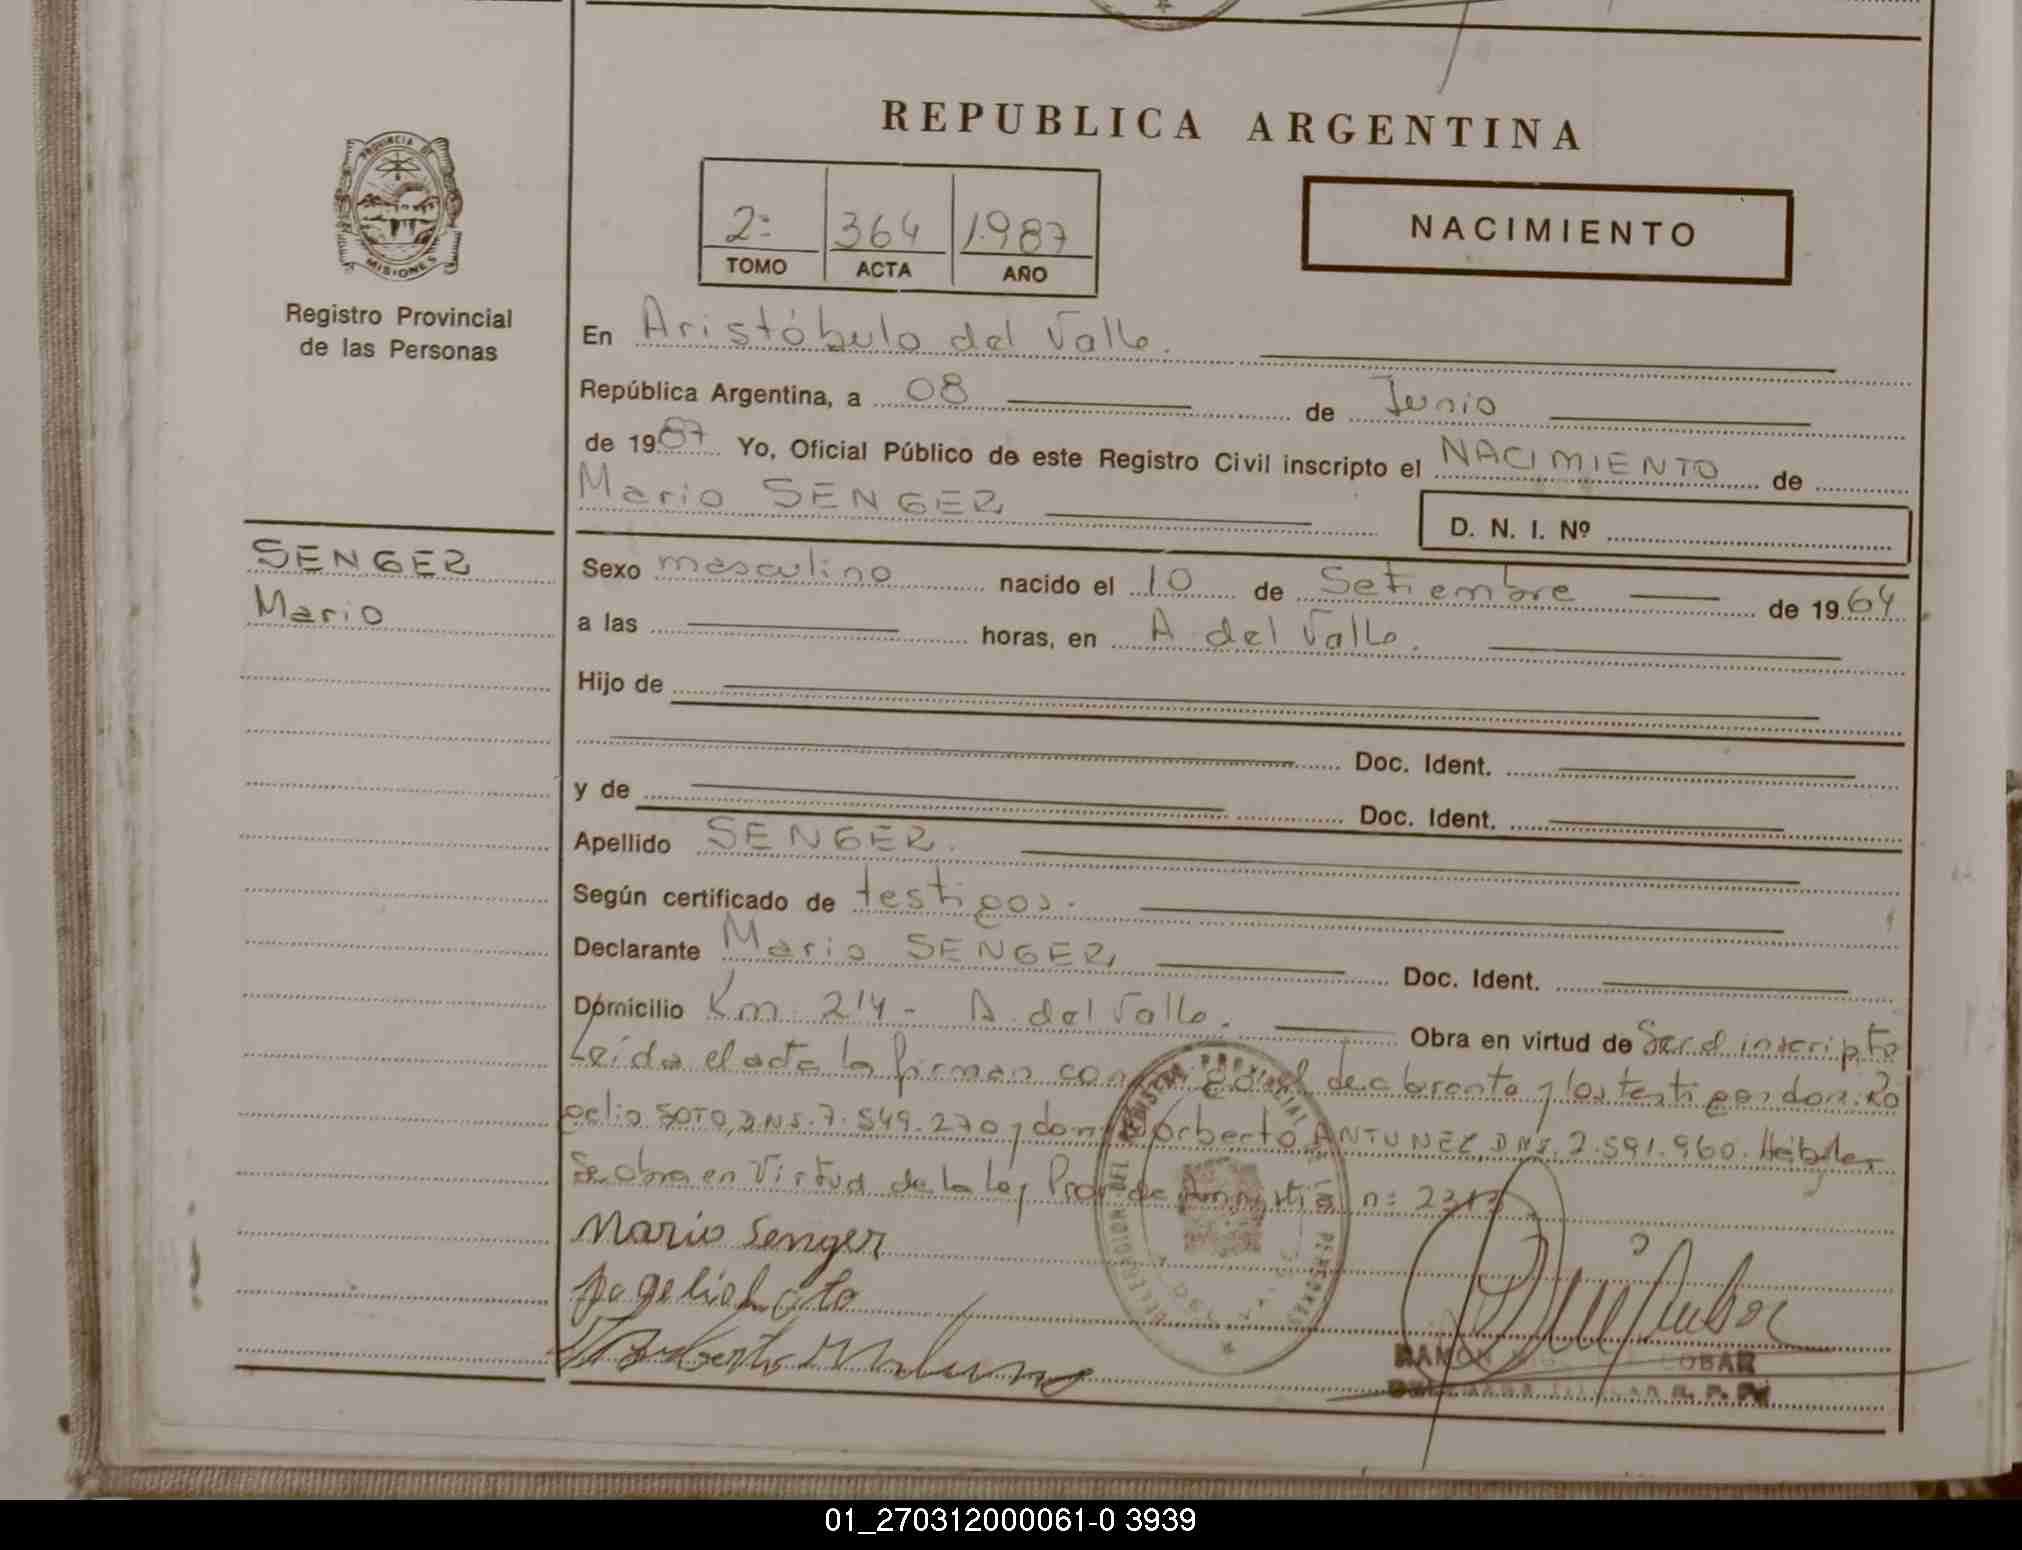 REPUBLICA ARGENTINA
PROVINCIA DE
MISIONES
Registro Provincial
de las Personas
2º 364 1.987
TOMO ACTA AÑO
NACIMIENTO
En Aristóbulo del Valle.
República Argentina, a 08 de Junio
de 1987 Yo, Oficial Público de este Registro Civil inscripto el NACIMIENTO de
Mario SENGER
D. N. I. Nº
SENGER
Mario
Sexo masculino nacido el 10 de Setiembre de 1964
a las horas, en A. del Valle.
Hijo de
Doc. Ident.
y de Doc. Ident.
Apellido SENGER.
Según certificado de testigos.
Declarante Mario SENGER Doc. Ident.
Domicilio Km. 214 - A. del Valle. Obra en virtud de Ser el inscripto
Leída el acta la firman con el declarante y los testigos don: Ro
gelio SOTO, DNI. 7.549.270 y don: Norberto ANTUNEZ, DNI. 2.591.960. Hábiles
Se obra en Virtud de la Ley Prov. de Amnistía n: 2313
Mario Senger
Rogelio Soto
Norberto
RAMON OBAR
01_270312000061-0 3939